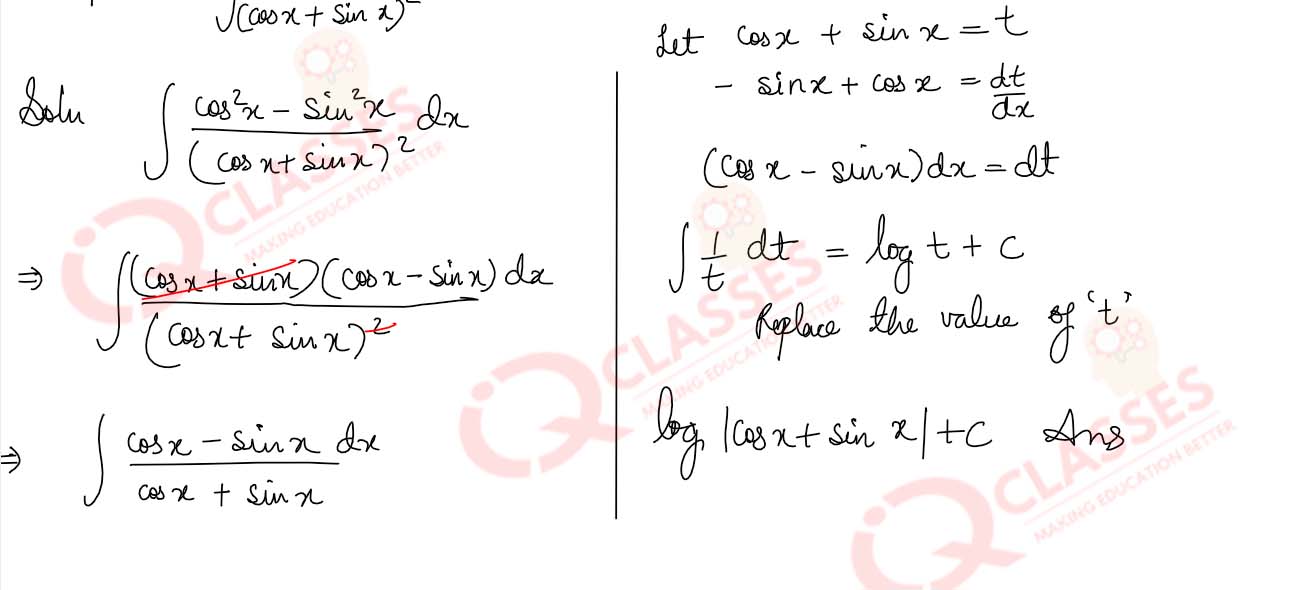 ∫(cosx + sin x)²
Soln ∫ cos²x − sin²x / (cos x + sin x)² dx
⇒ ∫ (cos x + sinx)(cos x − sin x) dx / (cos x + sin x)²
⇒ ∫ cosx − sinx dx / cos x + sin x
Let cosx + sinx = t
- sinx + cosx = dt/dx
(cos x − sinx)dx = dt
∫ 1/t dt = log t + c
Replace the value of 't'
log |cosx + sin x| + c Ans
iQ CLASSES
MAKING EDUCATION BETTER
iQ CLASSES
MAKING EDUCATION BETTER
iQ CLASSES
MAKING EDUCATION BETTER